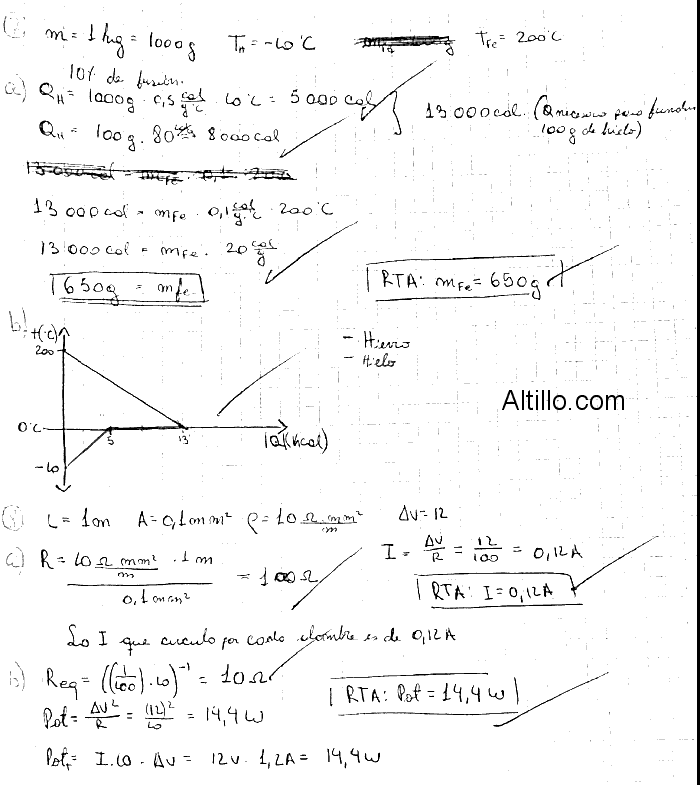 m = 1 kg = 1000g   T_H = -10°C   T_Fe = 200°C
10% de fusión.
a) Q_H = 1000g · 0,5 cal/g°C · 10°C = 5000 cal
Q_H = 100g · 80 cal/g = 8000 cal
13000 cal. (Q necesario para fundir 100g de hielo)
13 000 cal = m_Fe · 0,1 cal/g·°C · 200°C
13 000 cal = m_Fe · 20 cal/g
650g = m_fe
RTA: m_Fe = 650g
b) t(°C)
200
- Hierro
- Hielo
Altillo.com
0°C
5 13 |Q|(kcal)
-10
L = 1m   A = 0,1mm²   ρ = 10 Ω·mm²/m   ΔV = 12
a) R = (10 Ω mm²/m · 1 m) / 0,1mm² = 100Ω
I = ΔV/R = 12/100 = 0,12A
RTA: I = 0,12A
La I que circula por cada alambre es de 0,12A
b) Req = ((1/100) · 10)⁻¹ = 10Ω
RTA: Pot = 14,4 w
Pot = ΔV²/R = (12)²/10 = 14,4 w
Pot_T = I·10 · ΔV = 12V · 1,2A = 14,4w